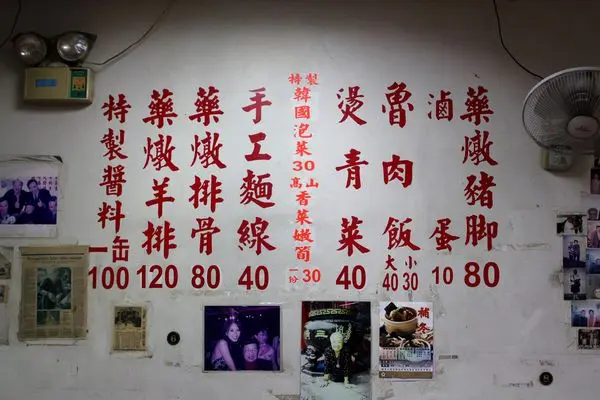 藥燉豬腳 80
滷蛋 10
魯肉飯 大40 小30
燙青菜 40
特製韓國泡菜30
高山香菜嫩筍 30
手工麵線 40
藥燉排骨 80
藥燉羊排 120
特製醬料一缶 100
補冬